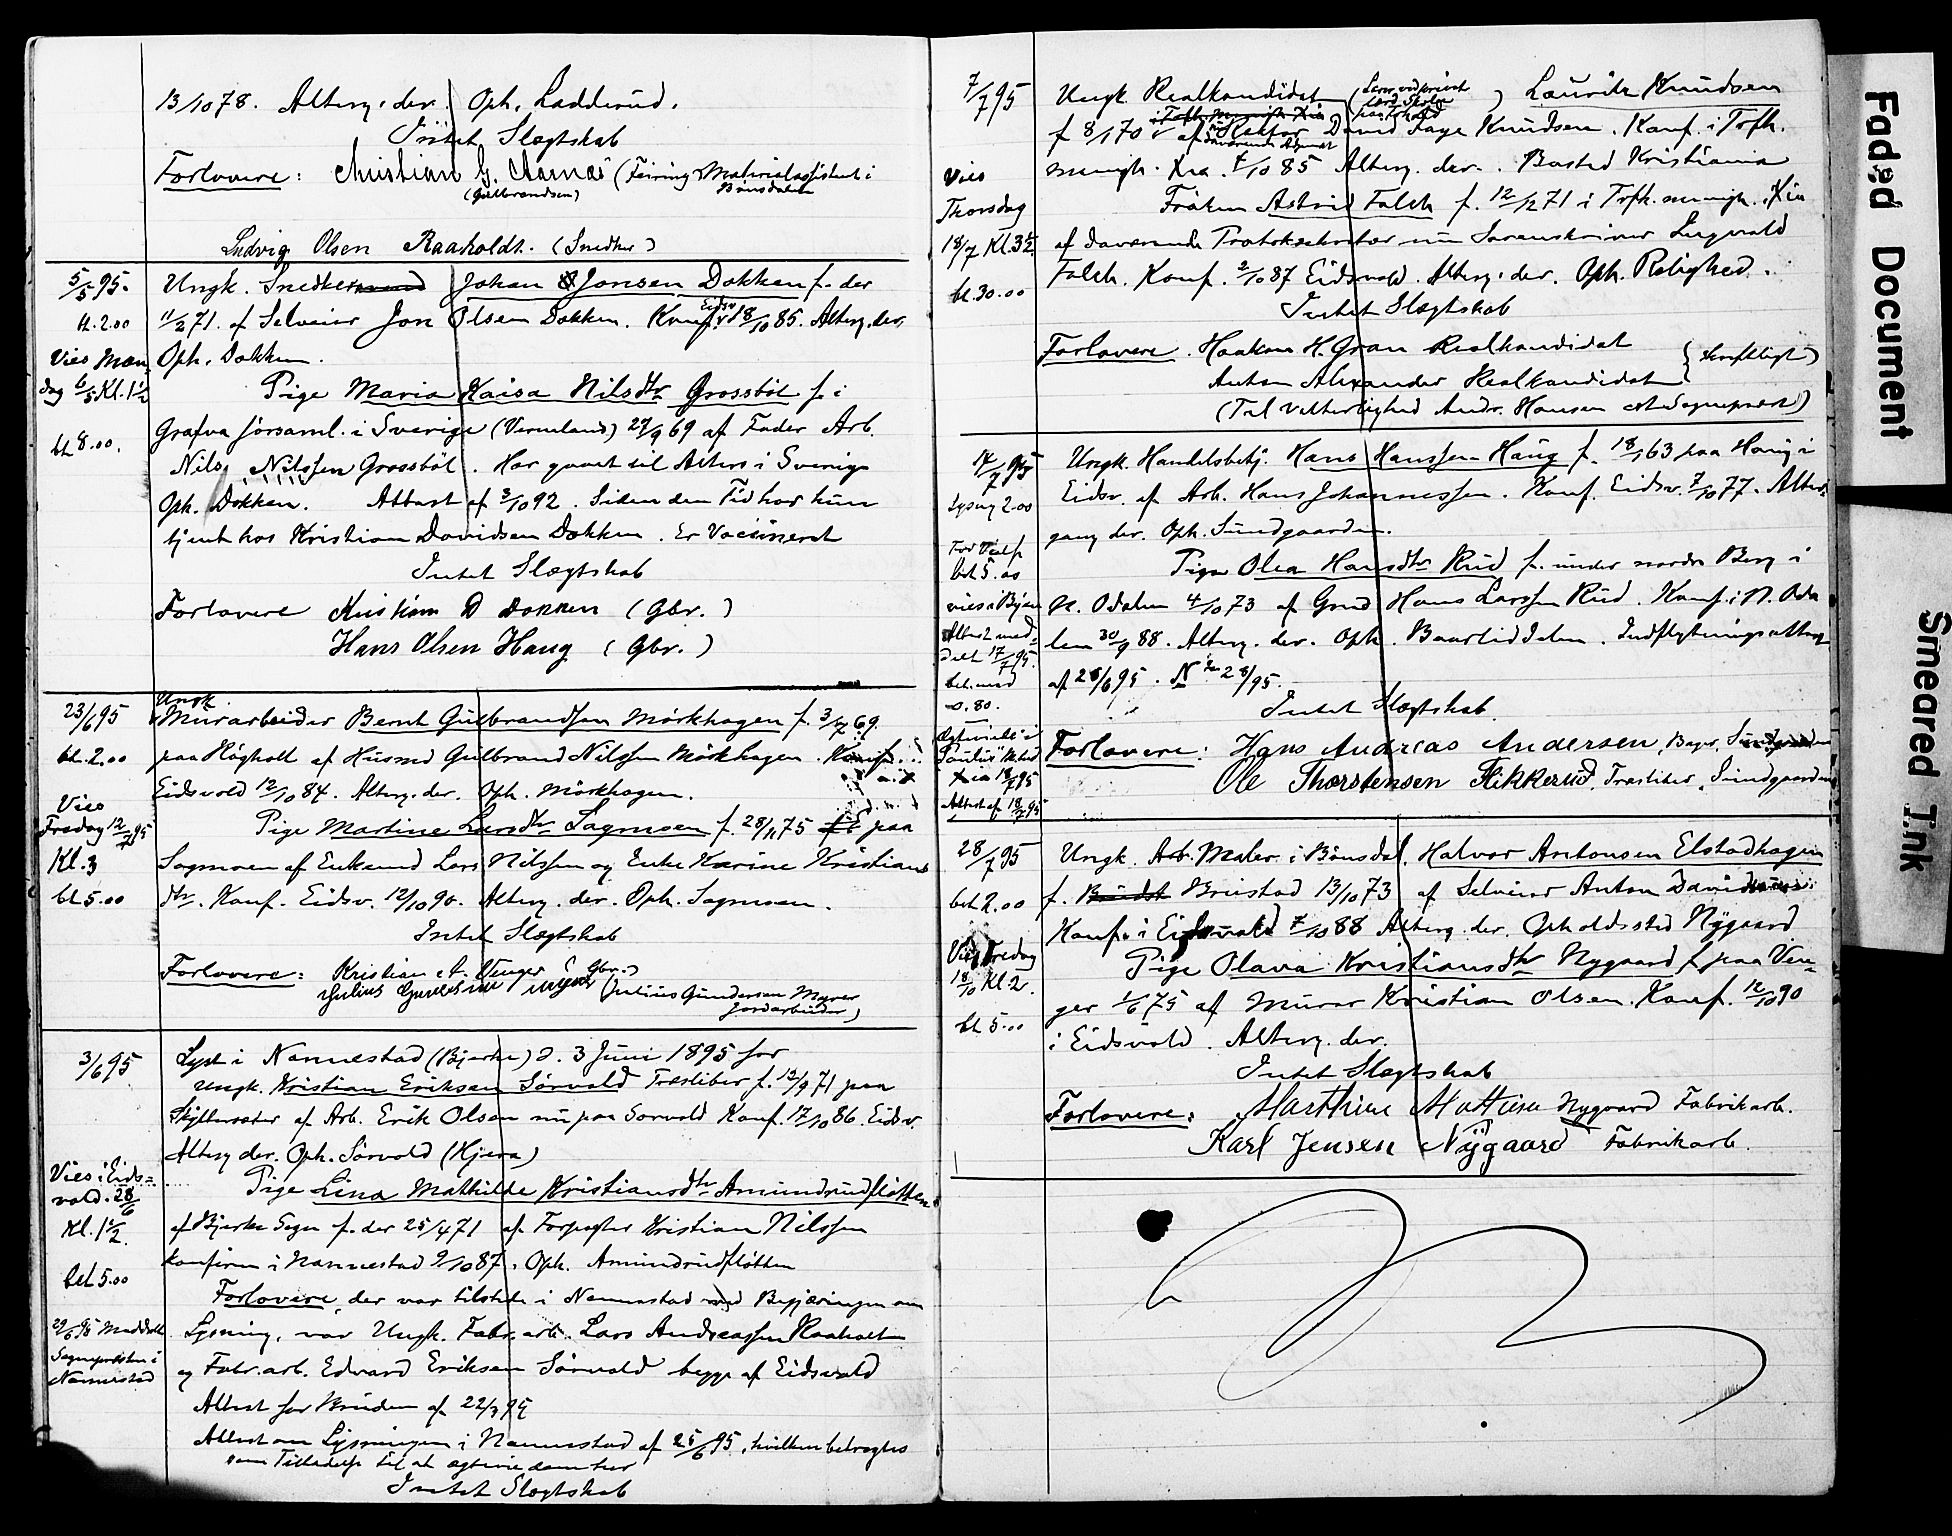 13/10 78. Alterg. der. Oph. Ladderud.
Intet Slægtskab
Forlovere: Christian G. Aarnæs (Feiring Materialassistent i
(Gulbrandsen) Bønsdalen
Ludvig Olsen Raaholdt. (Snedker)
5/5 95. Ungk. Snedker Johan Jonsen Dokken f. der
bt. 2.00 11/2 71. af Selveier Jon Olsen Dokken. Konf. Eidsv. 18/10 85. Alterg. der,
Vies Man Oph. Dokken.
dag 6/5 Kl. 1 1/2 Pige Maria Kaisa Nilsdtr Grossböl f. i
Grafva församl. i Sverige (Vermland) 27/9 69 af Fader Arb.
bt 8.00. Nils Nilssen Grossböl. Har gaaet til Alters i Sverige
Oph. Dokken. Attest af 3/10 92. Siden den Tid har hun
tjent hos Kristian Davidsen Dokken. Er Vaccineret
Intet Slægtskab
Forlovere Kristian D Dokken (Gbr.)
Hans Olsen Haug (Gbr.)
Ungk.
23/6 95 Murarbeider Bernt Gulbrandsen Mörkhagen f. 3/7 69.
bt. 2.00 paa Høgholt af Husmd Gulbrand Nilssen Mörkhagen. Konf. i
Eidsvold 12/10 84. Alterg. der. Oph. Mörkhagen.
Vies
Fredag 12/7 95 Pige Martine Larsdtr Sagmoen f. 28/11 75 paa
Kl. 3 Sagmoen af Enkemd Lars Nilssen og Enke Karine Kristians
bt 5.00 dtr. Konf. Eidsv. 12/10 90. Alterg. der. Oph. Sagmoen.
Intet Slægtskab
Forlovere: Kristian A. Venger (Gbr.)
Julius Gundersen (Julius Gundersen Murer
Jordarbeider)
3/6 95 Lyst i Nannestad (Bjerke) d. 3 Juni 1895 for
Ungk. Kristian Eriksen Sörvald Træsliber f. 12/9 71 paa
af Arb. Erik Olsen nu paa Sorvald Konf. 17/10 86. Eidsv.
Alterg der. Oph. Sörvald (Hjera)
Vies i Eids-
vold. 28/6 Pige Lina Mathilde Kristiansdtr Amundrudfløtten
Kl. 1 1/2. af Bjerke Sogn f. der 25/4 71 af Forpagter Kristian Nilssen
konfirm i Nannestad 9/10 87. Oph. Amundrudfløtten
bet 5.00 Forlovere, der var tilstede i Nannestad ved Begjæringen om
29/6 95 Meddelt Lysning, var Ungk. Fabr. arb. Lars Andreassen Raaholt
Sognepræsten i og Fabr. arb. Edvard Eriksen Sörvald begge af Eidsvold
Nannestad
Attest for Bruden af 22/3 95
Attest om Lysningen i Nannestad af 25/6 95, hvilken betragtes
som Tilladelse til at ægtevie dem her
Intet Slægtskab
7/7 95 Ungk. Realkandidat Lauritz Knudsen
f 8/1 70 af Rektor David Faye Knudsen. Konf. i Trfk.
Vies menigh. Kra. 4/10 85 Alterg. der. Bosted Kristiania
Thorsdag Frøken Astrid Falch f. 12/12 71 i Trfk. menigh. Kra
18/7 Kl. 3 1/2 af daværende Protoksekretær nu Sorenskriver Lugvald
bt. 30.00 Falch. Konf. 2/10 87 Eidsvold. Alterg. der. Oph. Rolighed.
Intet Slægtskab
Forlovere. Haakon H. Gran Realkandidat
Anton Alexander Realkandidat (skriftligt)
(Til Vitterlighed Andr. Hansen est Sognepræst)
14/7 95 Ungk. Handelsbetj. Hans Hanssen Haug f. 18/1 63 paa Haug i
Lysng 2.00 Eidsv. af Arb. Hans Johannessen. Konf. Eidsv. 7/10 77. Alter-
gang der. Oph. Sundgaarden.
For Vielse
bet 5.00 Pige Olea Hansdtr Rud f. under nordre Berg i
vies i Byen N. Odalen 4/10 73 af Grmd Hans Larssen Rud. Konf. i N. Oda
Attest med- len 30/9 88. Alterg. der. Oph. Baarliddalen. Indflytningsattest
delt 17/7 95. af 28/6 95. N 28/95.
bet. med
0.80. Intet Slægtskab.
Ægteviet i
Paulus Kirke Forlovere: Hans Andreas Andersen, Bager, Sundgaarden
Kra 18/7 95 Ole Thorstensen Flikkerud, Træsliber, Sundgaarden
Attest af 18/7 95
28/7 95 Ungk. Arb. Maler i Bönsdal. Halvor Antonsen Elstadhagen
bet 2.00 f. Brustad 13/10 73 af Selveier Anton Davidsen
Konf. i Eidsvold 7/10 88 Alterg. der. Opholdssted Nygaard
Vies Fredag Pige Olava Kristiansdtr Nygaard f. paa Ven-
18/10 Kl 2. ger 1/6 75 af Murer Kristian Olsen. Konf. 12/10 90
bt 5.00 i Eidsvold. Alterg. der.
Intet Slægtskab
Forlovere: Marthin Nygaard Fabrikarb.
Karl Jensen Nygaard Fabrikarb.
Faded Document
Smeared Ink